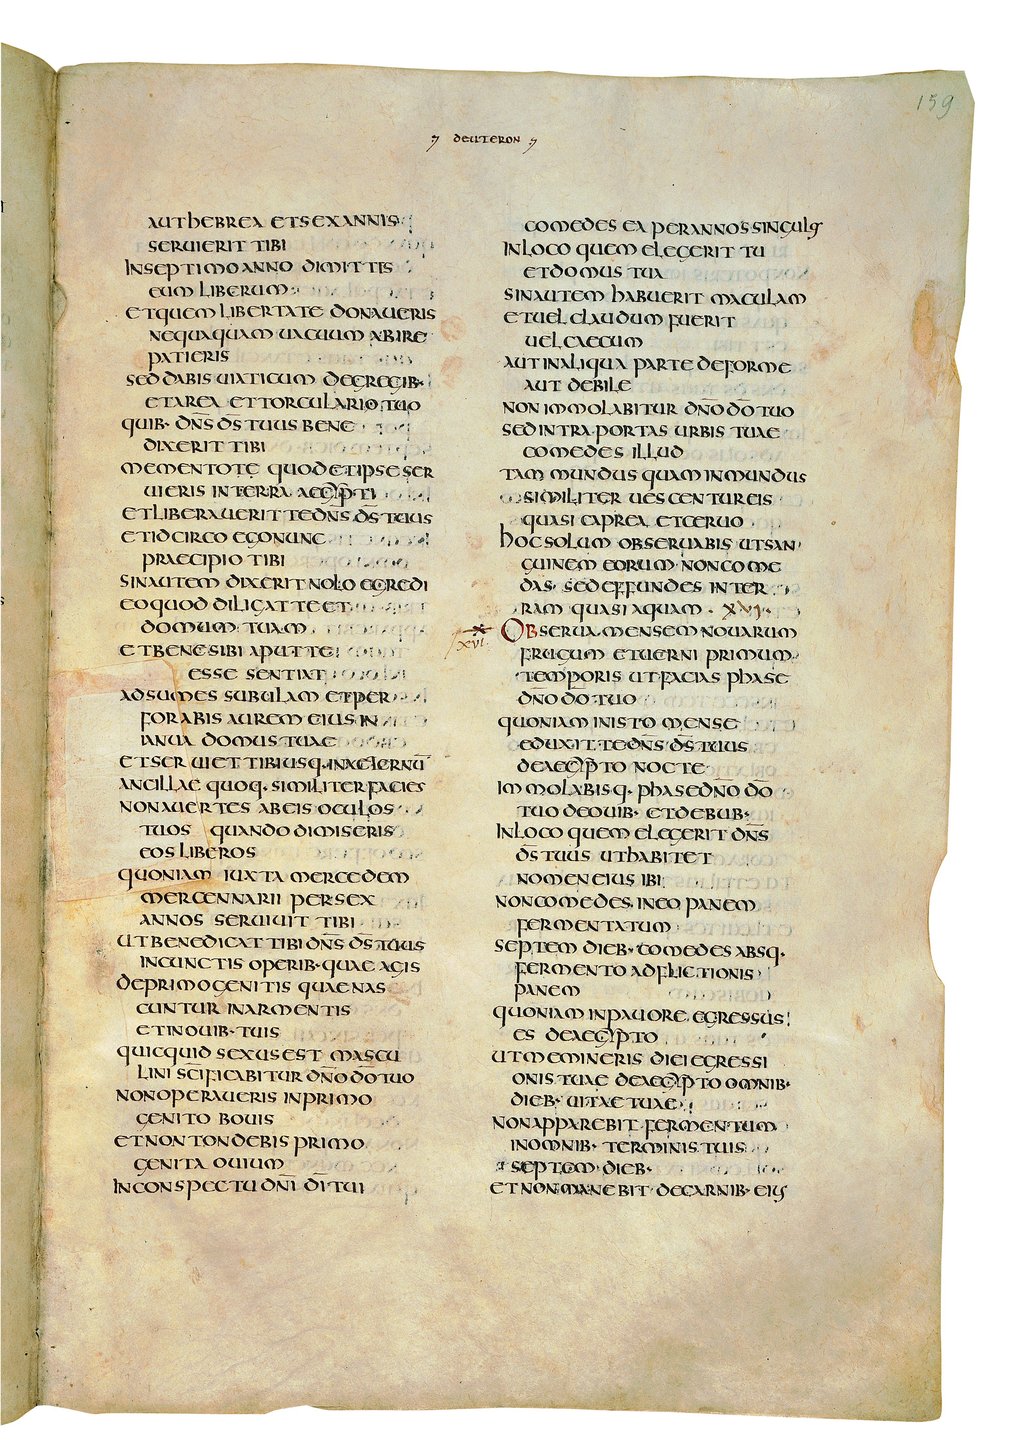 159
DEUTERON
AUT hEBREA ET SEX ANNIS
SERUIERIT TIBI
IN SEPTIMO ANNO DIMITTIS
EUM LIBERUM
ET QUEM LIBERTATE DONAUERIS
NEQUAQUAM UACUUM ABIRE
PATIERIS
SED DABIS UIATICUM DE GREGIB·
ET AREA ET TORCULARIO TUO
QUIB· DN̄S D̄S TUUS BENE
DIXERIT TIBI
MEMENTOTE QUOD ET IPSE SER
UIERIS IN TERRA AEGYPTI
ET LIBERAUERIT TE DN̄S D̄S TUUS
ET IDCIRCO EGO NUNC
PRAECIPIO TIBI
SIN AUTEM DIXERIT NOLO EGREDI
EO QUOD DILIGAT TE ET
DOMUM TUAM
ET BENE SIBI APUT TE
ESSE SENTIAT
ADSUMES SUBULAM ET PER
FORABIS AUREM EIUS IN
IANUA DOMUS TUAE
ET SERUIET TIBI USQ· IN AETERNŪ
ANCILLAE QUOQ· SIMILITER FACIES
NON AUERTES AB EIS OCULOS
TUOS QUANDO DIMISERIS
EOS LIBEROS
QUONIAM IUXTA MERCEDEM
MERCENNARII PER SEX
ANNOS SERUIUIT TIBI
UT BENEDICAT TIBI DN̄S D̄S TUUS
IN CUNCTIS OPERIB· QUAE AGIS
DE PRIMOGENITIS QUAE NAS
CUNTUR IN ARMENTIS
ET IN OUIB· TUIS
QUICQUID SEXUS EST MASCU
LINI SC̄IFICABITUR DN̄O D̄O TUO
NON OPERAUERIS IN PRIMO
GENITO BOUIS
ET NON TONDEBIS PRIMO
GENITA OUIUM
IN CONSPECTU DN̄I D̄I TUI
COMEDES EA PER ANNOS SINGULOS
IN LOCO QUEM ELEGERIT TU
ET DOMUS TUA
SIN AUTEM hABUERIT MACULAM
ET UEL CLAUDUM FUERIT
UEL CAECUM
AUT IN ALIQUA PARTE DEFORME
AUT DEBILE
NON IMMOLABITUR DN̄O D̄O TUO
SED INTRA PORTAS URBIS TUAE
COMEDES ILLUD
TAM MUNDUS QUAM INMUNDUS
SIMILITER UESCENTUR EIS
QUASI CAPREA ET CERUO
hOC SOLUM OBSERUABIS UT SAN
GUINEM EORUM NON COME
DAS· SED EFFUNDES IN TER
RAM QUASI AQUAM · XVI·
XVI
OBSERUA MENSEM NOUARUM
FRUGUM ET UERNI PRIMUM
TEMPORIS UT FACIAS PhASE
DN̄O D̄O TUO
QUONIAM IN ISTO MENSE
EDUXIT TE DN̄S D̄S TUUS
DE AEGYPTO NOCTE
IMMOLABISQ· PhASE DN̄O D̄O
TUO DE OUIB· ET DE BUB·
IN LOCO QUEM ELEGERIT DN̄S
D̄S TUUS UT hABITET
NOMEN EIUS IBI
NON COMEDES IN EO PANEM
FERMENTATUM
SEPTEM DIEB· COMEDES ABSQ·
FERMENTO ADFLICTIONIS
PANEM
QUONIAM IN PAUORE EGRESSUS
ES DE AEGYPTO
UT MEMINERIS DIEI EGRESSI
ONIS TUAE DE AEGYPTO OMNIB·
DIEB· UITAE TUAE
NON APPAREBIT FERMENTUM
IN OMNIB· TERMINIS TUIS
SEPTEM DIEB·
ET NON MANEBIT DE CARNIB· EIUS